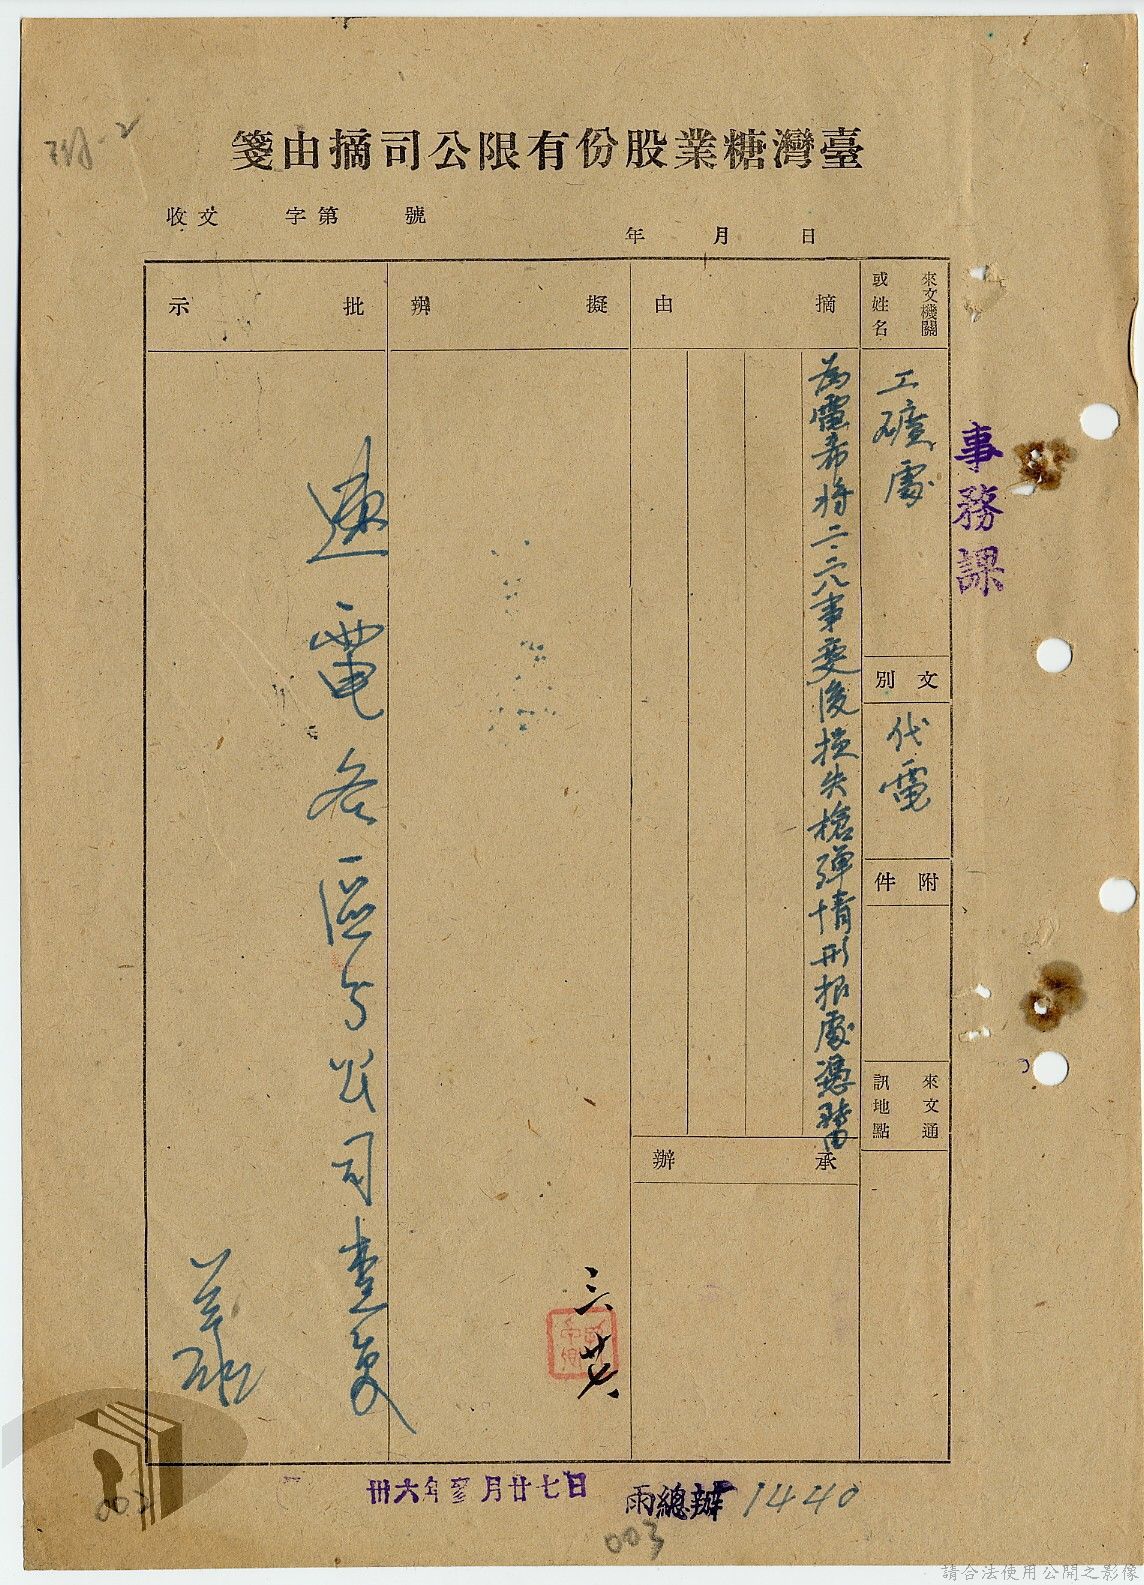 臺灣糖業股份有限公司摘由箋
收文 字第 號
年 月 日
來文機關
或姓名
工礦處
文別
代電
附件
來文通
訊地點
摘由
為電希將二·二八事變後損失槍彈情形報處憑轉由
承辦
擬辦
三、廿七、
批示
速電各區分公司查復
事務課
卅六年叁月廿七日
雨總辦 1440
003
002
請合法使用公開之影像